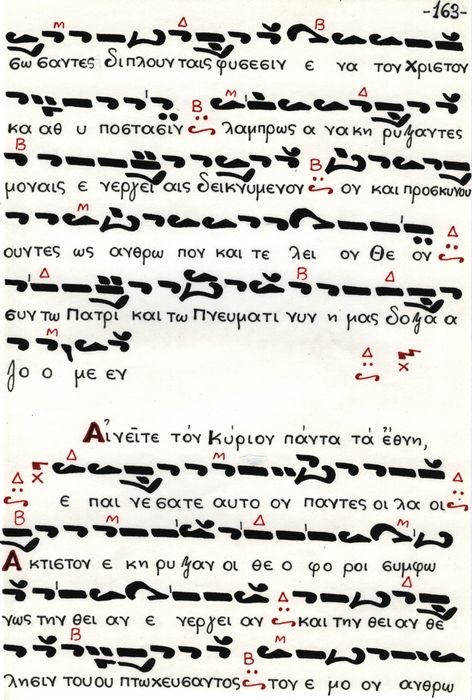 -163-
σω σαντες διπλουν ταις φυσεσιν ε να τον Χριστον
κα αθ υ ποστασιν λαμπρως α να κη ρυξαντες
μοναις ε νεργει αις δεικνυμενον ον και προσκυνου
ουντες ως ανθρω πον και τε λει ον Θε ον
συν τω Πατρι και τω Πνευματι νυν η μας δοξα α
ζο ο με εν
Αἰνεῖτε τόν Κύριον πάντα τά ἔθνη,
ε παι νε σατε αυτο ον παντες οι λα οι
Α κτιστον ε κη ρυξαν οι θε ο φο ροι συμφω
νως την θει αν ε νεργει αν και την θει αν θε
λησιν του ου πτωχευσαντος το ε μο ον ανθρω